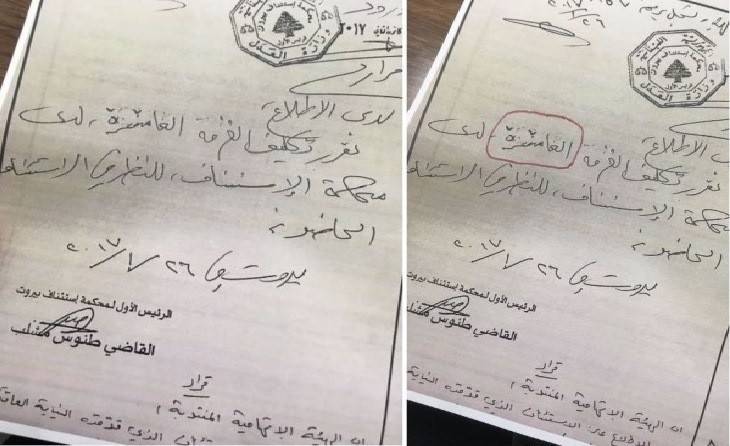 ٢٠١٧
قرار
لدى الاطلاع
نقرر تكليف الغرفة الخامسة، لدى
محكمة الإستئناف، للنظر في الاستئناف
الحاضر
بيروت في ٢٦/٧/٢٠١٧
الرئيس الأول لمحكمة إستئناف بيروت
القاضي طنوس مشلب
قرار
ان الهيئة الاتهامية المنتدبة
الذي قدمته النيابة
وزارة العدل
الاطلاع
نقرر تكليف الغرفة الخامسة، لدى
محكمة الإستئناف، للنظر في الاستئناف
الحاضر
بيروت في ٢٦/٧/٢٠١٧
الرئيس الأول لمحكمة إستئناف بيروت
القاضي طنوس مشلب
قرار
ان الهيئة الاتهامية المنتدبة
الاطلاع على الاستئناف الذي قدمته النيابة